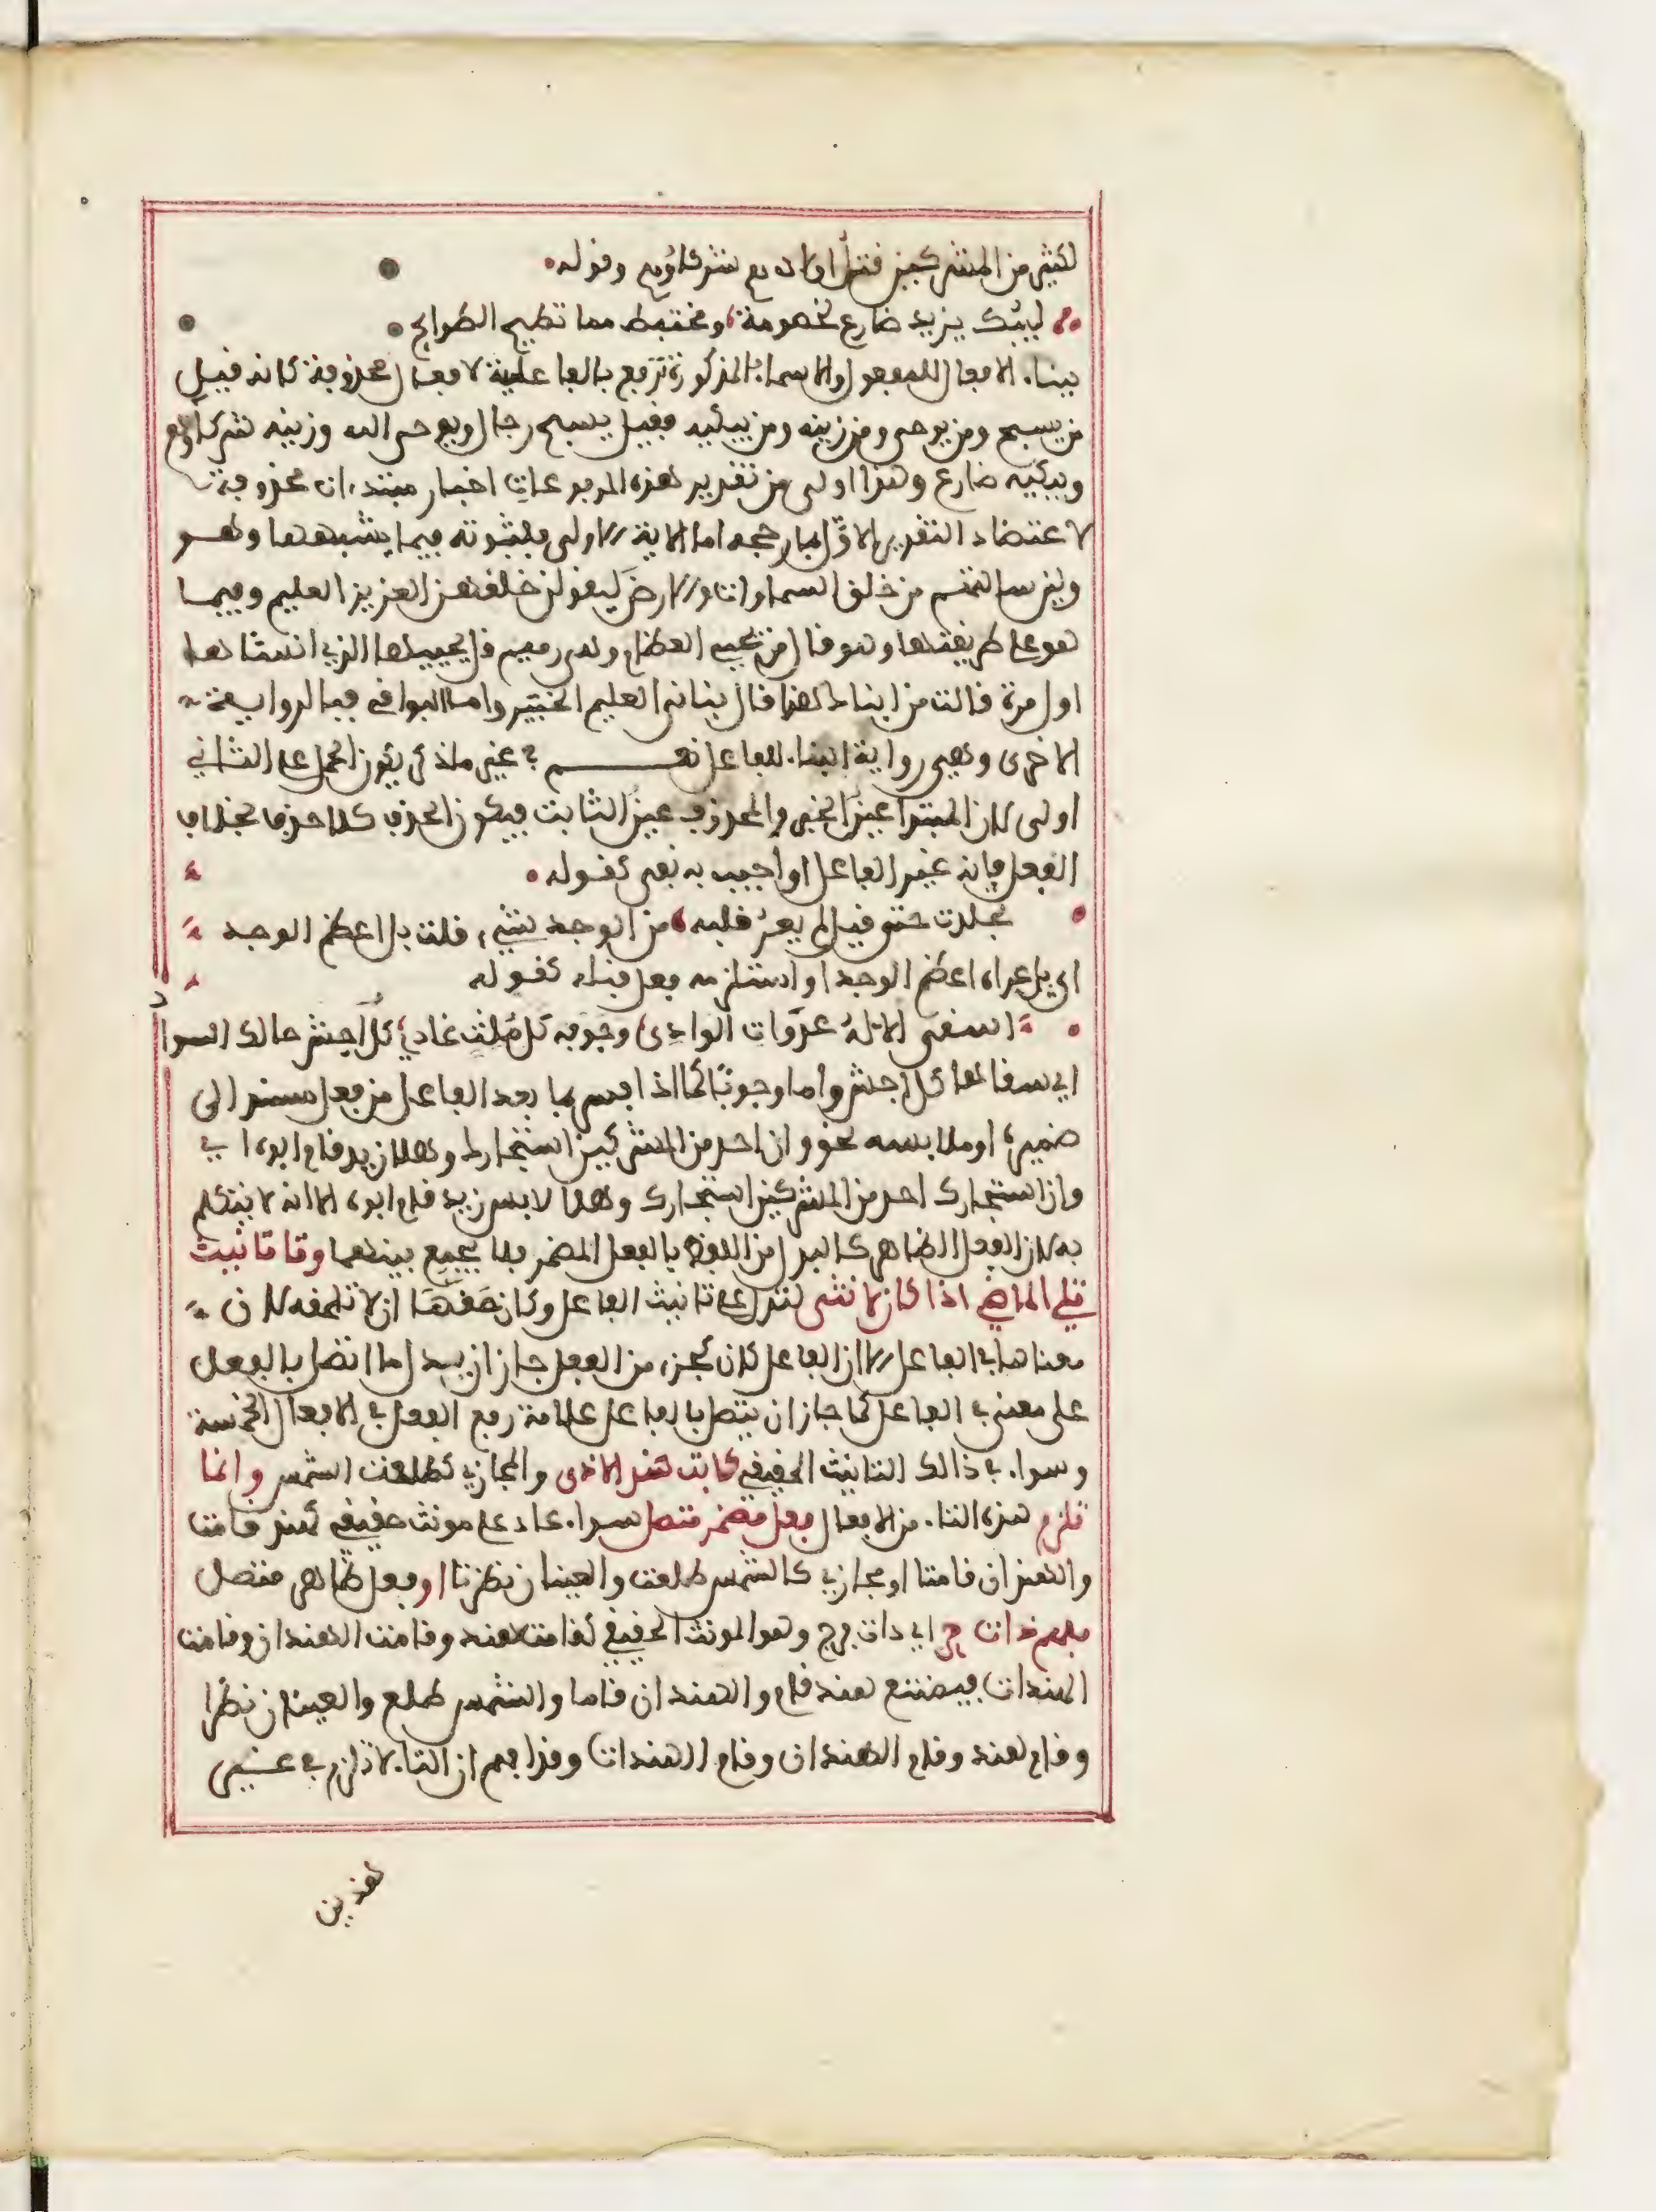 لكثير من المشركين قتل اولادهم شركاؤهم وقوله
ليبك يزيد ضارع لخصومة ومختبط مما تطيح الطوائح
ببناء الافعال للمفعول والاسماء المذكورة ترفع بالفاعلية لافعال محذوفة كانه قيل
من يسبح ومن يوحى ومن زينه ومن يبكيه فقيل يسبح رجال ويوحى الله وزينه شركاؤهم
ويبكيه ضارع وهذا اولى من تقدير هذه المرفوعات اخبار مبتدءات محذوفة
لاعتضاد التقدير الاول بما رجحه اما الاية الاولى فلثبوته فيما يشبهها وهو
ولين سالتهم من خلق السماوات والارض ليقولن خلقهن العزيز العليم وفيما
هو على طريقتها وهو قال من يحيي العظام وهي رميم قل يحييها الذي انشاها
اول مرة قالت من انباك هذا قال نباني العليم الخبير واما البواقي فبالرواية
الاخرى وهي رواية البناء للفاعل نعم غير ما ذكر يكون الحمل على الثاني
اولى لان المبتدا عين الخبر والمحذوف عين الثابت فيكون الحذف كلا حذف بخلاف
الفعل فانه غير الفاعل او اجيب به نفي كقوله
تجلدت حتى قيل لم يعر قلبه من الوجد شيء قلت بل اعظم الوجد
اي بل عراه اعظم الوجد او استلزمه فعل قبله كقوله
اسقى الاله عدوات الوادي وجوفه كل ملث غادي كل اجش حالك السواد
اي سقاها كل اجش واما وجوبا كما اذا فسر بما بعد الفاعل من فعل مسند الى
ضميره او ملابسه نحو وان احد من المشركين استجارك وهلا زيد قام ابوه اي
وان استجارك احد من المشركين استجارك وهلا لابس زيد قام ابوه الا انه لا يتكلم
به لان الفعل الظاهر كالبدل من اللفظ بالفعل المضمر فلا يجمع بينهما وتا تانيث
تلي الماضي اذا كان لانثى لتدل على تانيث الفاعل وكان حقها ان لا تلحقه لان
معناها في الفاعل الا ان الفاعل كان كجزء من الفعل جاز ان يدل ما اتصل بالفعل
على معنى في الفاعل كما جاز ان يتصل بالفاعل علامة رفع الفعل في الافعال الخمسة
وسواء في ذالك التانيث الحقيقي كابت هند الاذى والمجازي كطلعت الشمس وانما
تلزم هذه التاء من الافعال فعل مضمر متصل سواء عاد على مونث حقيقي كهند قامت
والهندان قامتا او مجازي كالشمس طلعت والعينان نظرتا او فعل ظاهر متصل
مفهم ذات حر اي ذات فرج وهو المونث الحقيقي كقامت هند وقامت الهندان وقامت
الهندات فيمتنع هند قام والهندان قاما والشمس طلع والعينان نظرا
وقام هند وقام الهندان وقام الهندات وقد افهم ان التاء لا تلزم في غير
هذين